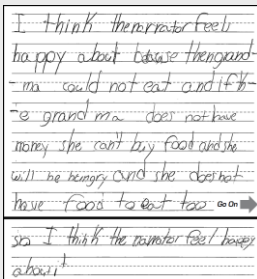 I think the narrator feels
happy about because thengrand-
-ma could not eat and if h-
-e grand ma does not have
money she can't buy food and she
will be hemgry and she does not
have food to eat too Go On
so I think the narrator feel happy
about it